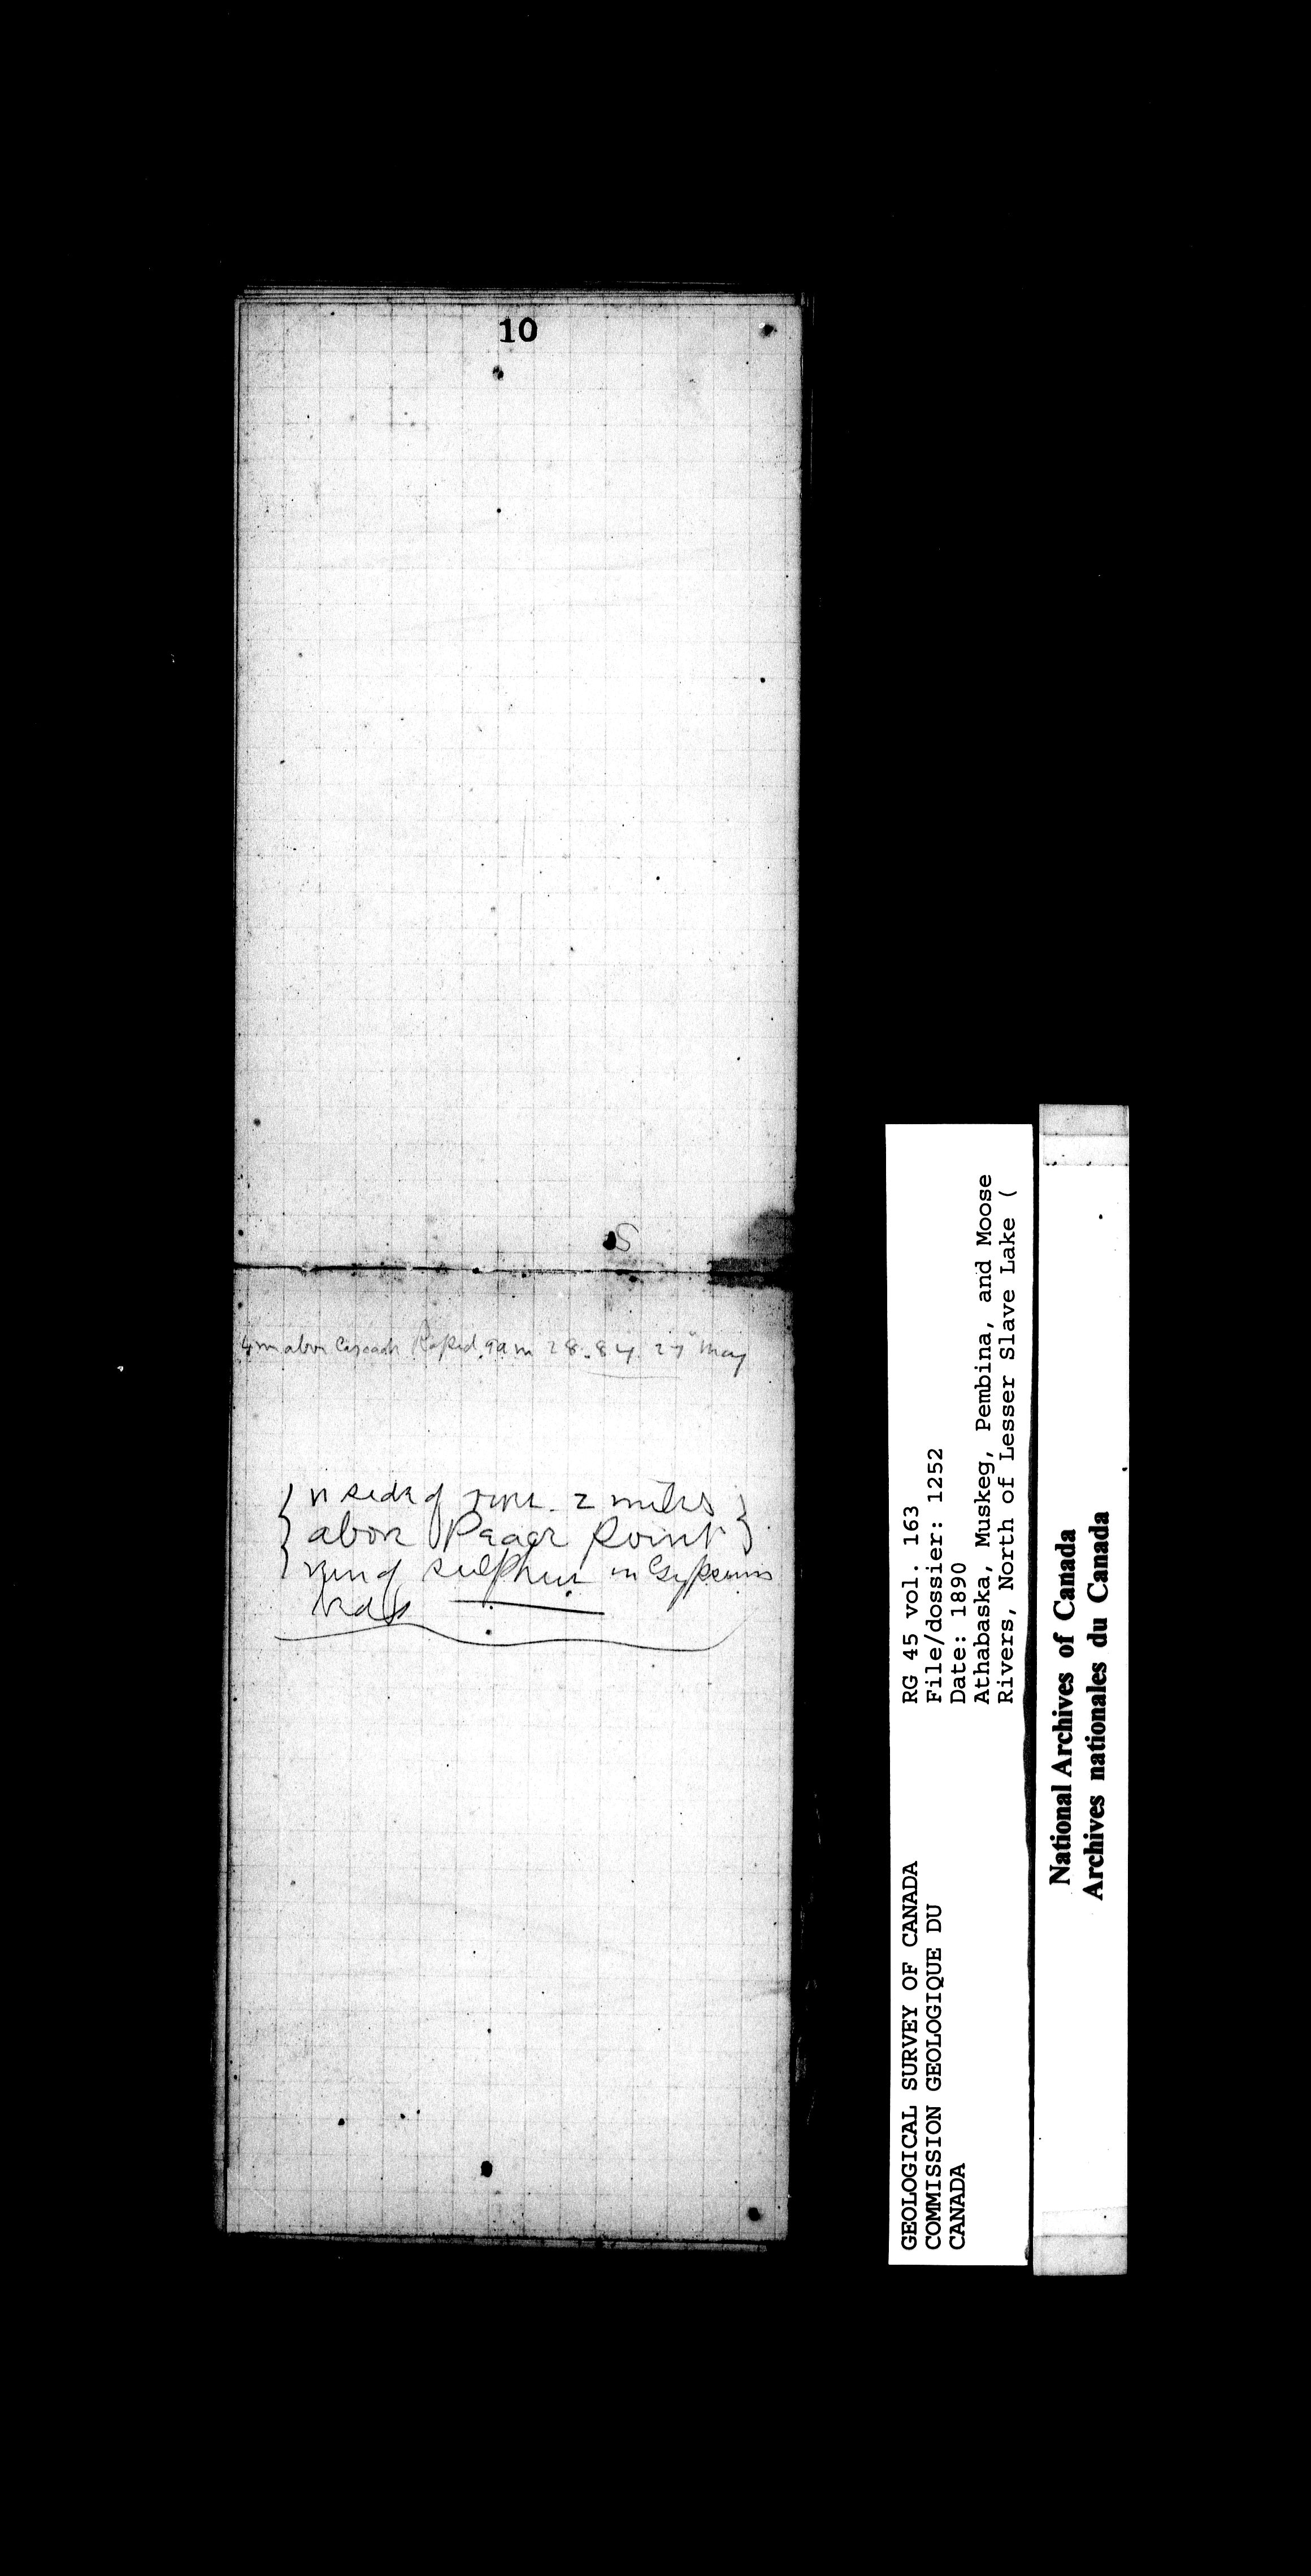 10
S
4 m above Cascade Rapid 9 am 28.84 27 May
n side of river 2 miles
above Peace Point
vein of sulphur in Gypsum
beds
GEOLOGICAL SURVEY OF CANADA
COMMISSION GEOLOGIQUE DU
CANADA
RG 45 vol. 163
File/dossier: 1252
Date: 1890
Athabaska, Muskeg, Pembina, and Moose
Rivers, North of Lesser Slave Lake (
National Archives of Canada
Archives nationales du Canada